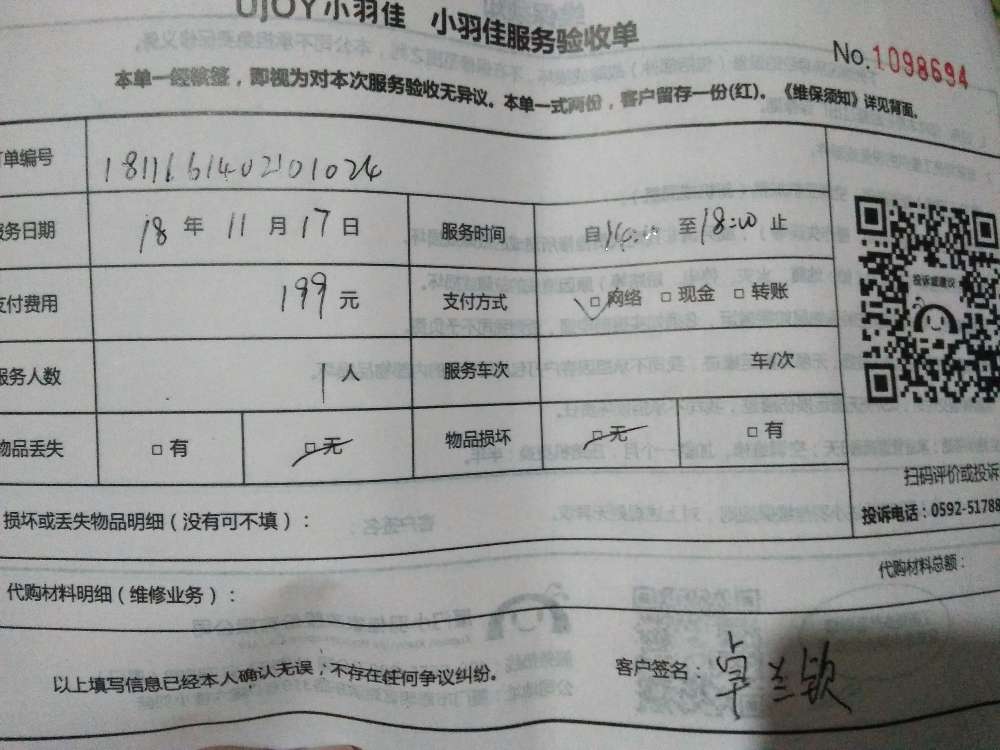 UJOY小羽佳 小羽佳服务验收单
No.1098694
本单一经核签，即视为对本次服务验收无异议。本单一式两份，客户留存一份(红)。《维保须知》详见背面。
订单编号 181161402101024
服务日期 18 年 11 月 17 日 服务时间 自 至 18:00 止
支付费用 199 元 支付方式 □ 网络 □ 现金 □ 转账
服务人数 1 人 服务车次 车/次
物品丢失 □ 有 □ 无 物品损坏 □ 无 □ 有
投诉或建议
扫码评价或投诉
投诉电话：0592-51788
损坏或丢失物品明细（没有可不填）：
代购材料明细（维修业务）： 代购材料总额：
以上填写信息已经本人确认无误，不存在任何争议纠纷。 客户签名：卓兰钦